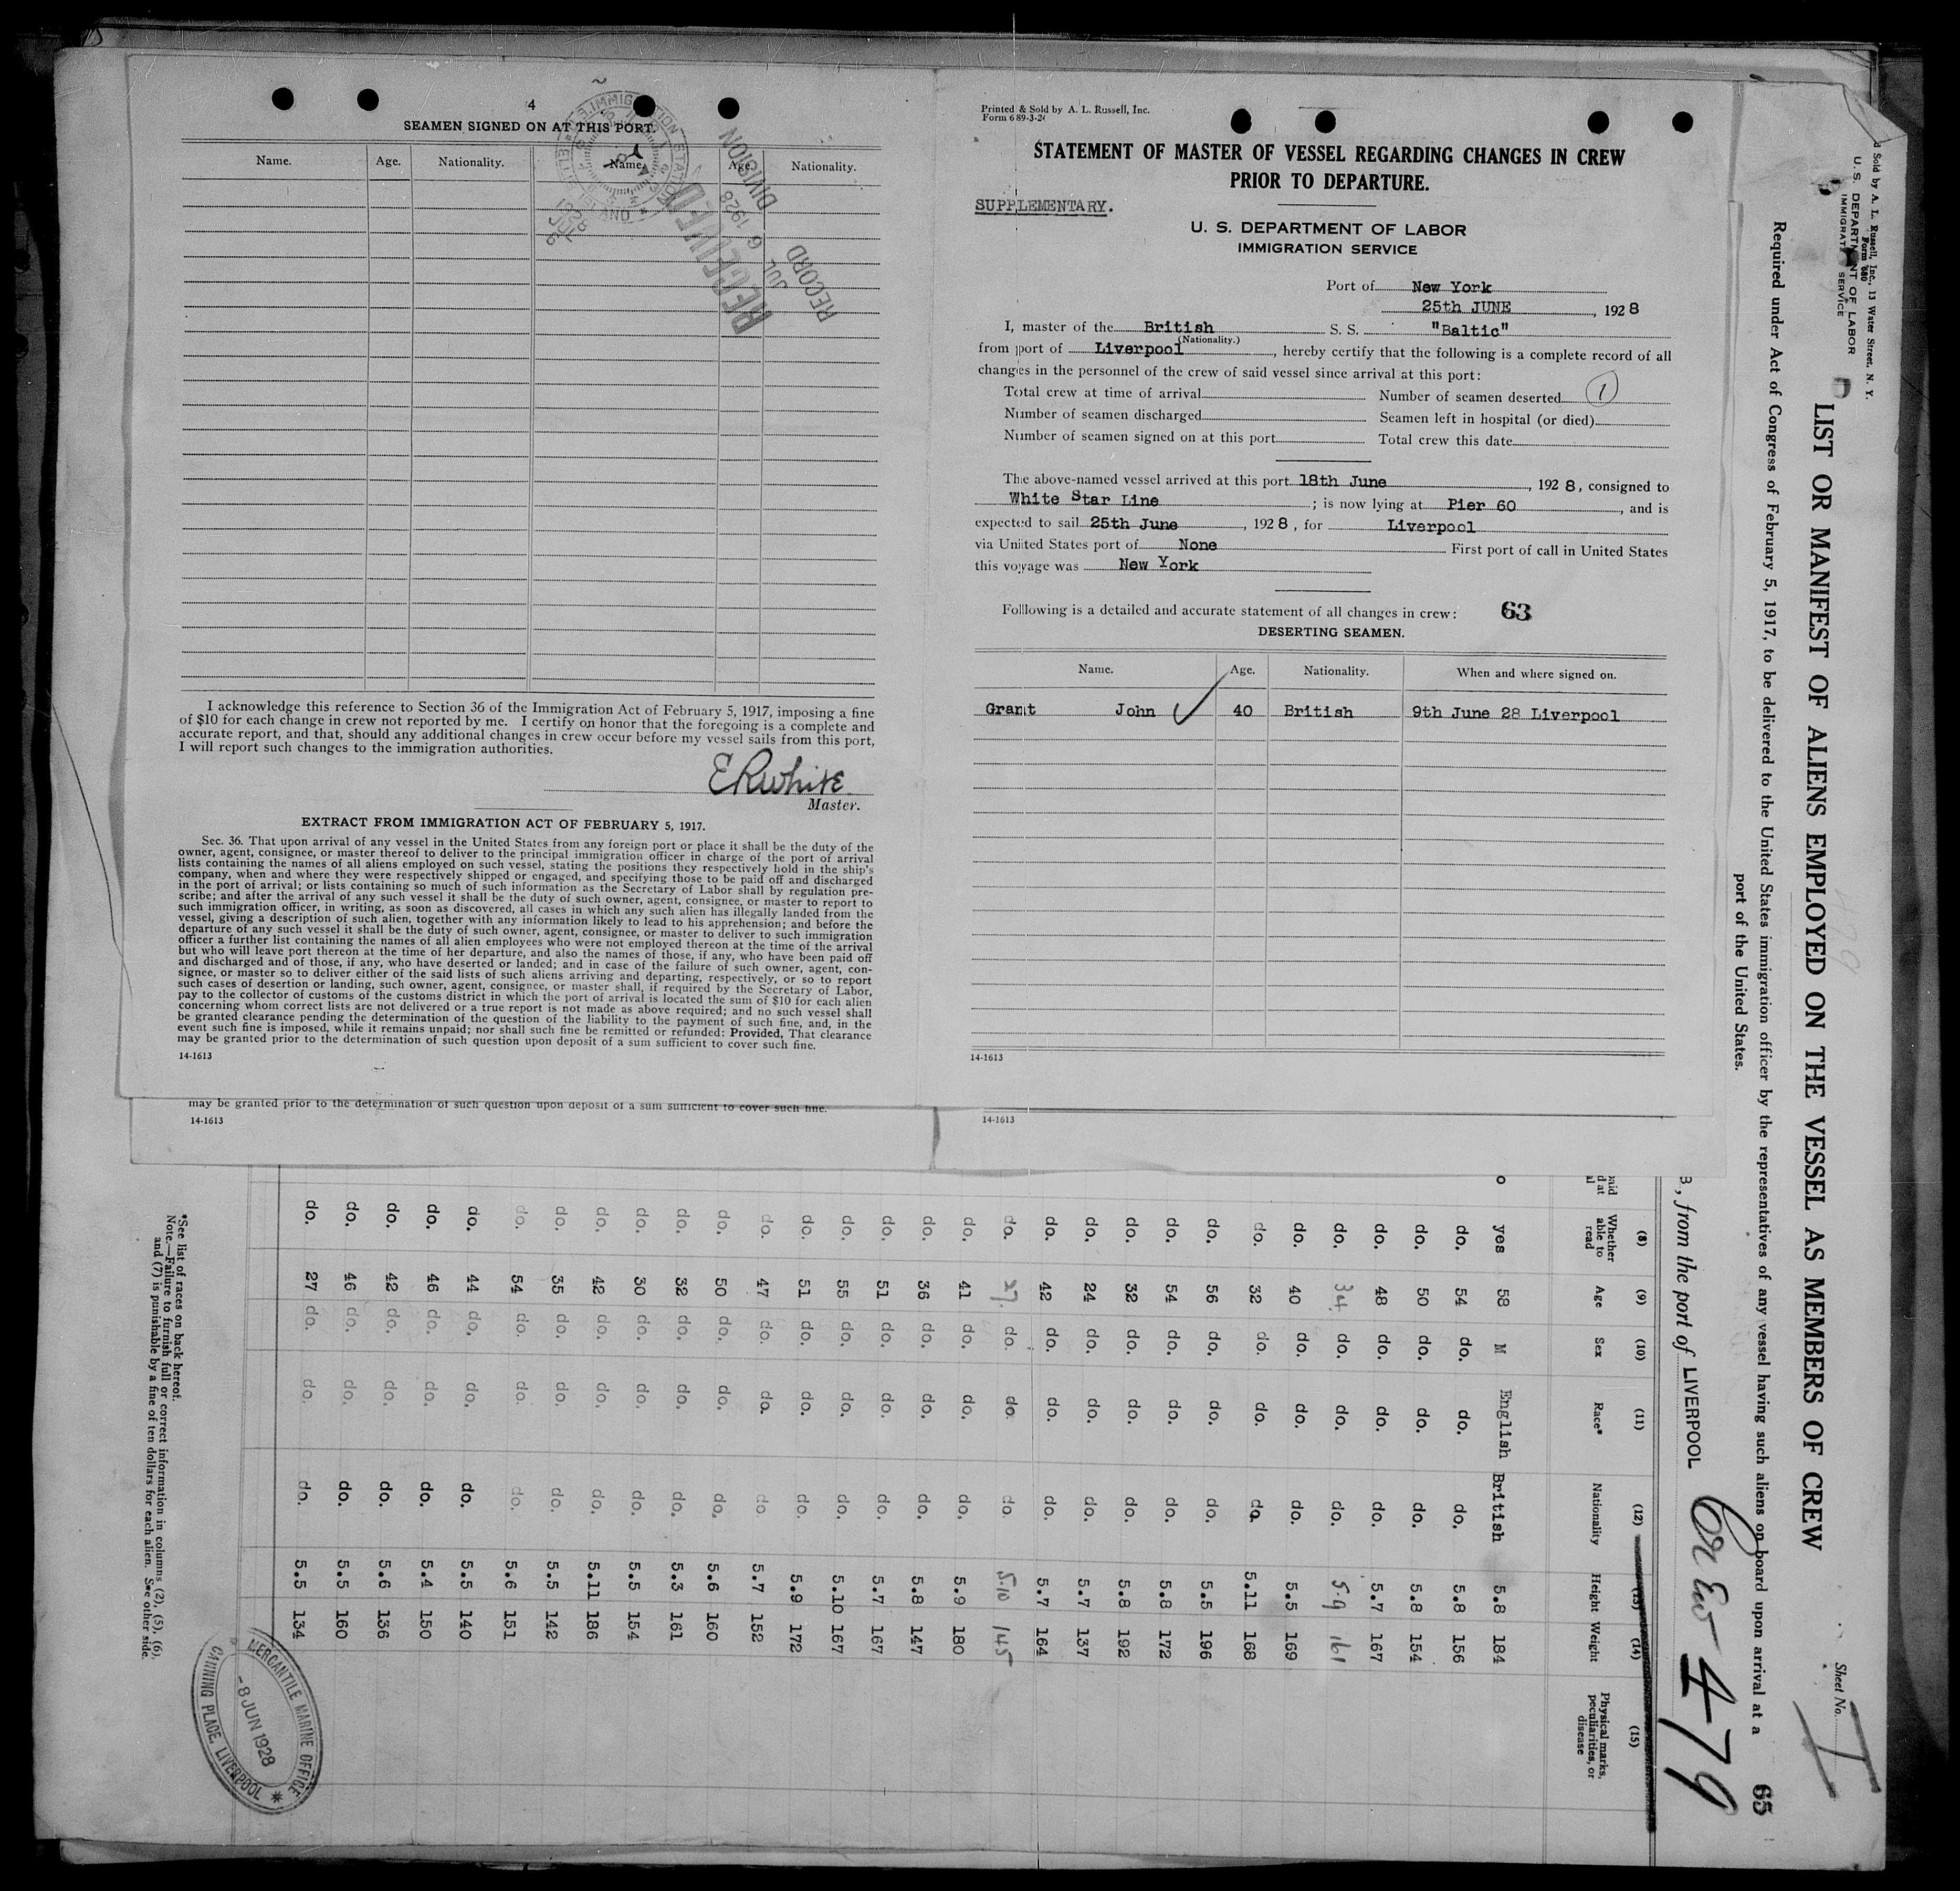 4
SEAMEN SIGNED ON AT THIS PORT.
Name. Age. Nationality. Name. Age. Nationality.
RECEIVED
JUL 6 1928
RECORD DIVISION
I acknowledge this reference to Section 36 of the Immigration Act of February 5, 1917, imposing a fine
of $10 for each change in crew not reported by me. I certify on honor that the foregoing is a complete and
accurate report, and that, should any additional changes in crew occur before my vessel sails from this port,
I will report such changes to the immigration authorities.
ERWhite
Master.
EXTRACT FROM IMMIGRATION ACT OF FEBRUARY 5, 1917.
Sec. 36. That upon arrival of any vessel in the United States from any foreign port or place it shall be the duty of the
owner, agent, consignee, or master thereof to deliver to the principal immigration officer in charge of the port of arrival
lists containing the names of all aliens employed on such vessel, stating the positions they respectively hold in the ship's
company, when and where they were respectively shipped or engaged, and specifying those to be paid off and discharged
in the port of arrival; or lists containing so much of such information as the Secretary of Labor shall by regulation pre-
scribe; and after the arrival of any such vessel it shall be the duty of such owner, agent, consignee, or master to report to
such immigration officer, in writing, as soon as discovered, all cases in which any such alien has illegally landed from the
vessel, giving a description of such alien, together with any information likely to lead to his apprehension; and before the
departure of any such vessel it shall be the duty of such owner, agent, consignee, or master to deliver to such immigration
officer a further list containing the names of all alien employees who were not employed thereon at the time of the arrival
but who will leave port thereon at the time of her departure, and also the names of those, if any, who have been paid off
and discharged and of those, if any, who have deserted or landed; and in case of the failure of such owner, agent, con-
signee, or master so to deliver either of the said lists of such aliens arriving and departing, respectively, or so to report
such cases of desertion or landing, such owner, agent, consignee, or master shall, if required by the Secretary of Labor,
pay to the collector of customs of the customs district in which the port of arrival is located the sum of $10 for each alien
concerning whom correct lists are not delivered or a true report is not made as above required; and no such vessel shall
be granted clearance pending the determination of the question of the liability to the payment of such fine, and, in the
event such fine is imposed, while it remains unpaid; nor shall such fine be remitted or refunded: Provided, That clearance
may be granted prior to the determination of such question upon deposit of a sum sufficient to cover such fine.
14-1613
may be granted prior to the determination of such question upon deposit of a sum sufficient to cover such fine.
14-1613
Printed & Sold by A. L. Russell, Inc.
Form 689-3-2
STATEMENT OF MASTER OF VESSEL REGARDING CHANGES IN CREW
PRIOR TO DEPARTURE.
SUPPLEMENTARY.
U. S. DEPARTMENT OF LABOR
IMMIGRATION SERVICE
Port of New York
25th JUNE, 1928
I, master of the British S. S. "Baltic"
(Nationality.)
from port of Liverpool, hereby certify that the following is a complete record of all
changes in the personnel of the crew of said vessel since arrival at this port:
Total crew at time of arrival Number of seamen deserted 1
Number of seamen discharged Seamen left in hospital (or died)
Number of seamen signed on at this port Total crew this date
The above-named vessel arrived at this port 18th June, 1928, consigned to
White Star Line; is now lying at Pier 60, and is
expected to sail 25th June, 1928, for Liverpool
via United States port of None First port of call in United States
this voyage was New York
Following is a detailed and accurate statement of all changes in crew: 63
DESERTING SEAMEN.
Name. Age. Nationality. When and where signed on.
Grant John 40 British 9th June 28 Liverpool
14-1613
14-1613
Sold by A. L. Russell, Inc., 13 Water Street, N. Y.
Form 680
U. S. DEPARTMENT OF LABOR
IMMIGRATION SERVICE
Sheet No. I
LIST OR MANIFEST OF ALIENS EMPLOYED ON THE VESSEL AS MEMBERS OF CREW
Required under Act of Congress of February 5, 1917, to be delivered to the United States immigration officer by the representatives of any vessel having such aliens on board upon arrival at a
port of the United States.
65
, from the port of LIVERPOOL
Crew 479
(8) (9) (10) (11) (12) (13) (14) (15)
Whether able to read Age Sex Race* Nationality Height Weight Physical marks, peculiarities, or disease
yes 58 M English British 5.8 184
do. 54 do. do. do. 5.8 156
do. 50 do. do. do. 5.8 154
do. 48 do. do. do. 5.7 167
do. 34 do. do. do. 5.9 161
do. 40 do. do. do. 5.5 169
do. 32 do. do. do. 5.11 168
do. 56 do. do. do. 5.5 196
do. 54 do. do. do. 5.8 172
do. 32 do. do. do. 5.8 192
do. 24 do. do. do. 5.7 137
do. 42 do. do. do. 5.7 164
do. 27 do. do. do. 5.10 145
do. 41 do. do. do. 5.9 180
do. 36 do. do. do. 5.8 147
do. 51 do. do. do. 5.7 167
do. 55 do. do. do. 5.10 167
do. 51 do. do. do. 5.9 172
do. 47 do. do. do. 5.7 152
do. 50 do. do. do. 5.6 160
do. 32 do. do. do. 5.3 161
do. 30 do. do. do. 5.5 154
do. 42 do. do. do. 5.11 186
do. 35 do. do. do. 5.5 142
do. 54 do. do. do. 5.6 151
do. 44 do. do. do. 5.5 140
do. 46 do. do. do. 5.4 150
do. 42 do. do. do. 5.6 136
do. 46 do. do. do. 5.5 160
do. 27 do. do. do. 5.5 134
*See list of races on back hereof.
Note.—Failure to furnish full or correct information in columns (2), (5), (6),
and (7) is punishable by a fine of ten dollars for each alien. See other side.
MERCANTILE MARINE OFFICE
-8 JUN 1928
CANNING PLACE, LIVERPOOL